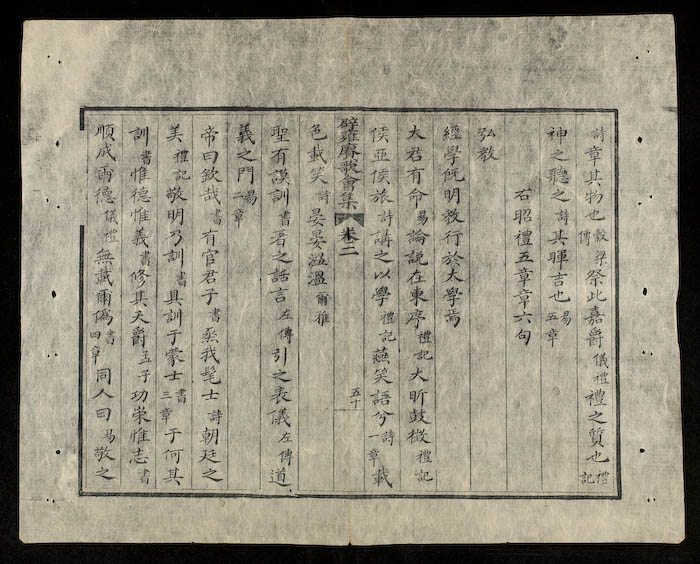 詩章其物也穀梁傳祭此嘉爵儀禮禮之質也禮記
神之聽之詩其暉吉也易五章
右昭禮五章章六句
弘教
經學旣明教行於大學焉
大君有命易論說在東序禮記大昕鼓徵禮記
侯亞侯旅詩講之以學禮記燕笑語兮詩一章載
辟雍賡歌會集 卷二 五十
色載笑詩晏晏溫溫爾雅
聖有謨訓書著之話言左傳引之表儀左傳道
義之門易一章
帝曰欽哉書有官君子書烝我髦士詩朝廷之
美禮記敬明乃訓書具訓于蒙士書三章于何其
訓書惟德惟義書修其天爵孟子功崇惟志書
順成爾德儀禮無載爾僞書四章同人曰易敬之